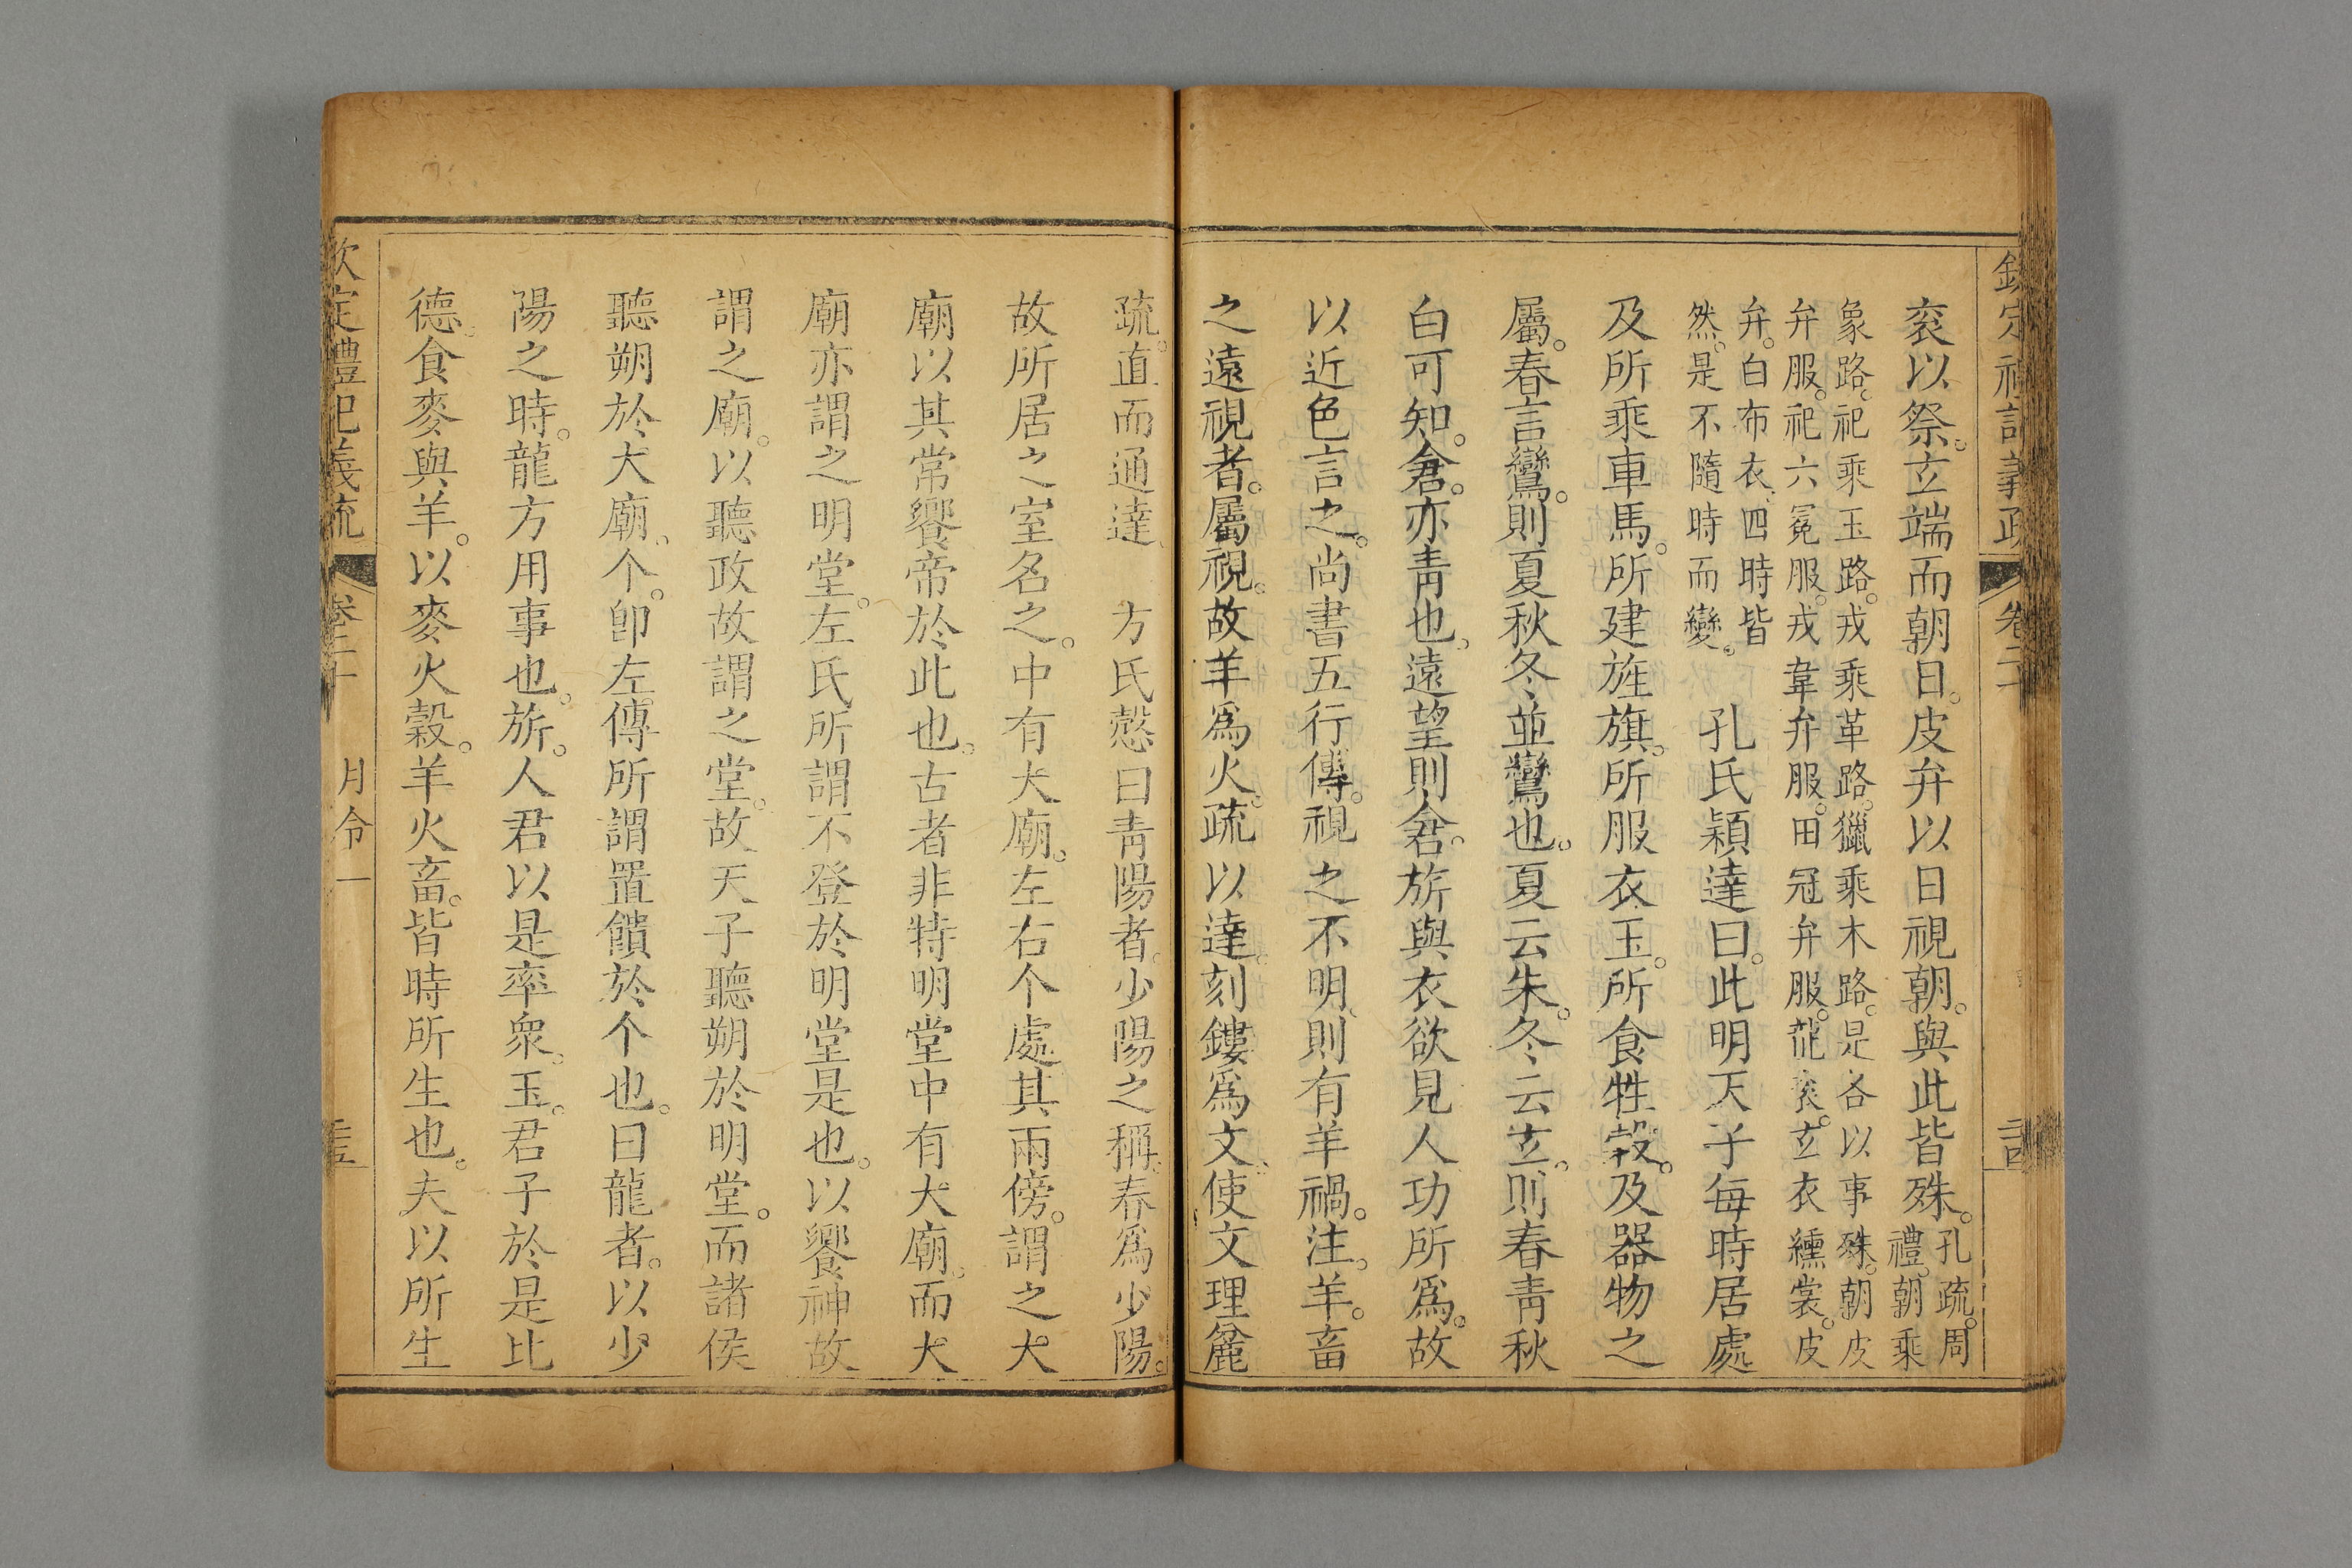 欽定禮記義疏 卷二十
袞以祭。玄端而朝日。皮弁以日視朝。與此皆殊。孔疏。周
禮。朝乘
象路。祀乘玉路。戎乘革路。獵乘木路。是各以事殊。朝皮
弁服。祀六冕服。戎韋弁服。田冠弁服。龍袞。玄衣纁裳。皮
弁。白布衣。四時皆
然。是不隨時而變。
孔氏穎達曰。此明天子每時居處
及所乘車馬。所建旌旗。所服衣玉。所食牲穀。及器物之
屬。春言鸞。則夏秋冬並鸞也。夏云朱。冬云玄。則春青秋
白可知。倉。亦青也。遠望則倉。旂與衣欲見人功所爲。故
以近色言之。尚書五行傳。視之不明。則有羊禍。注。羊。畜
之遠視者。屬視。故羊爲火。疏以達。刻鏤爲文。使文理麤
疏。直而通達。 方氏慤曰青陽者。少陽之稱。春爲少陽。
故所居之室名之。中有大廟。左右个處其兩傍。謂之大
廟以其常饗帝於此也。古者非特明堂中有大廟。而大
廟亦謂之明堂。左氏所謂不登於明堂是也。以饗神故
謂之廟。以聽政故謂之堂。故天子聽朔於明堂。而諸侯
聽朔於大廟。个。卽左傳所謂置饋於个也。曰龍者。以少
陽之時。龍方用事也。旂。人君以是率衆。玉。君子於是比
德。食麥與羊。以麥火穀。羊火畜。皆時所生也。夫以所生
欽定禮記義疏 卷二十 月令一